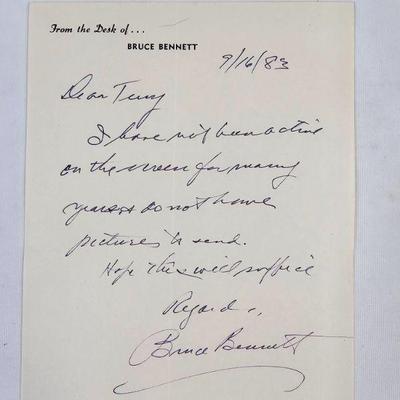 From the Desk of . . .
BRUCE BENNETT
9/16/83
Dear Terry
I have not been active
on the screen for many
years & do not have
pictures to send.
Hope this will suffice
Regards,
Bruce Bennett